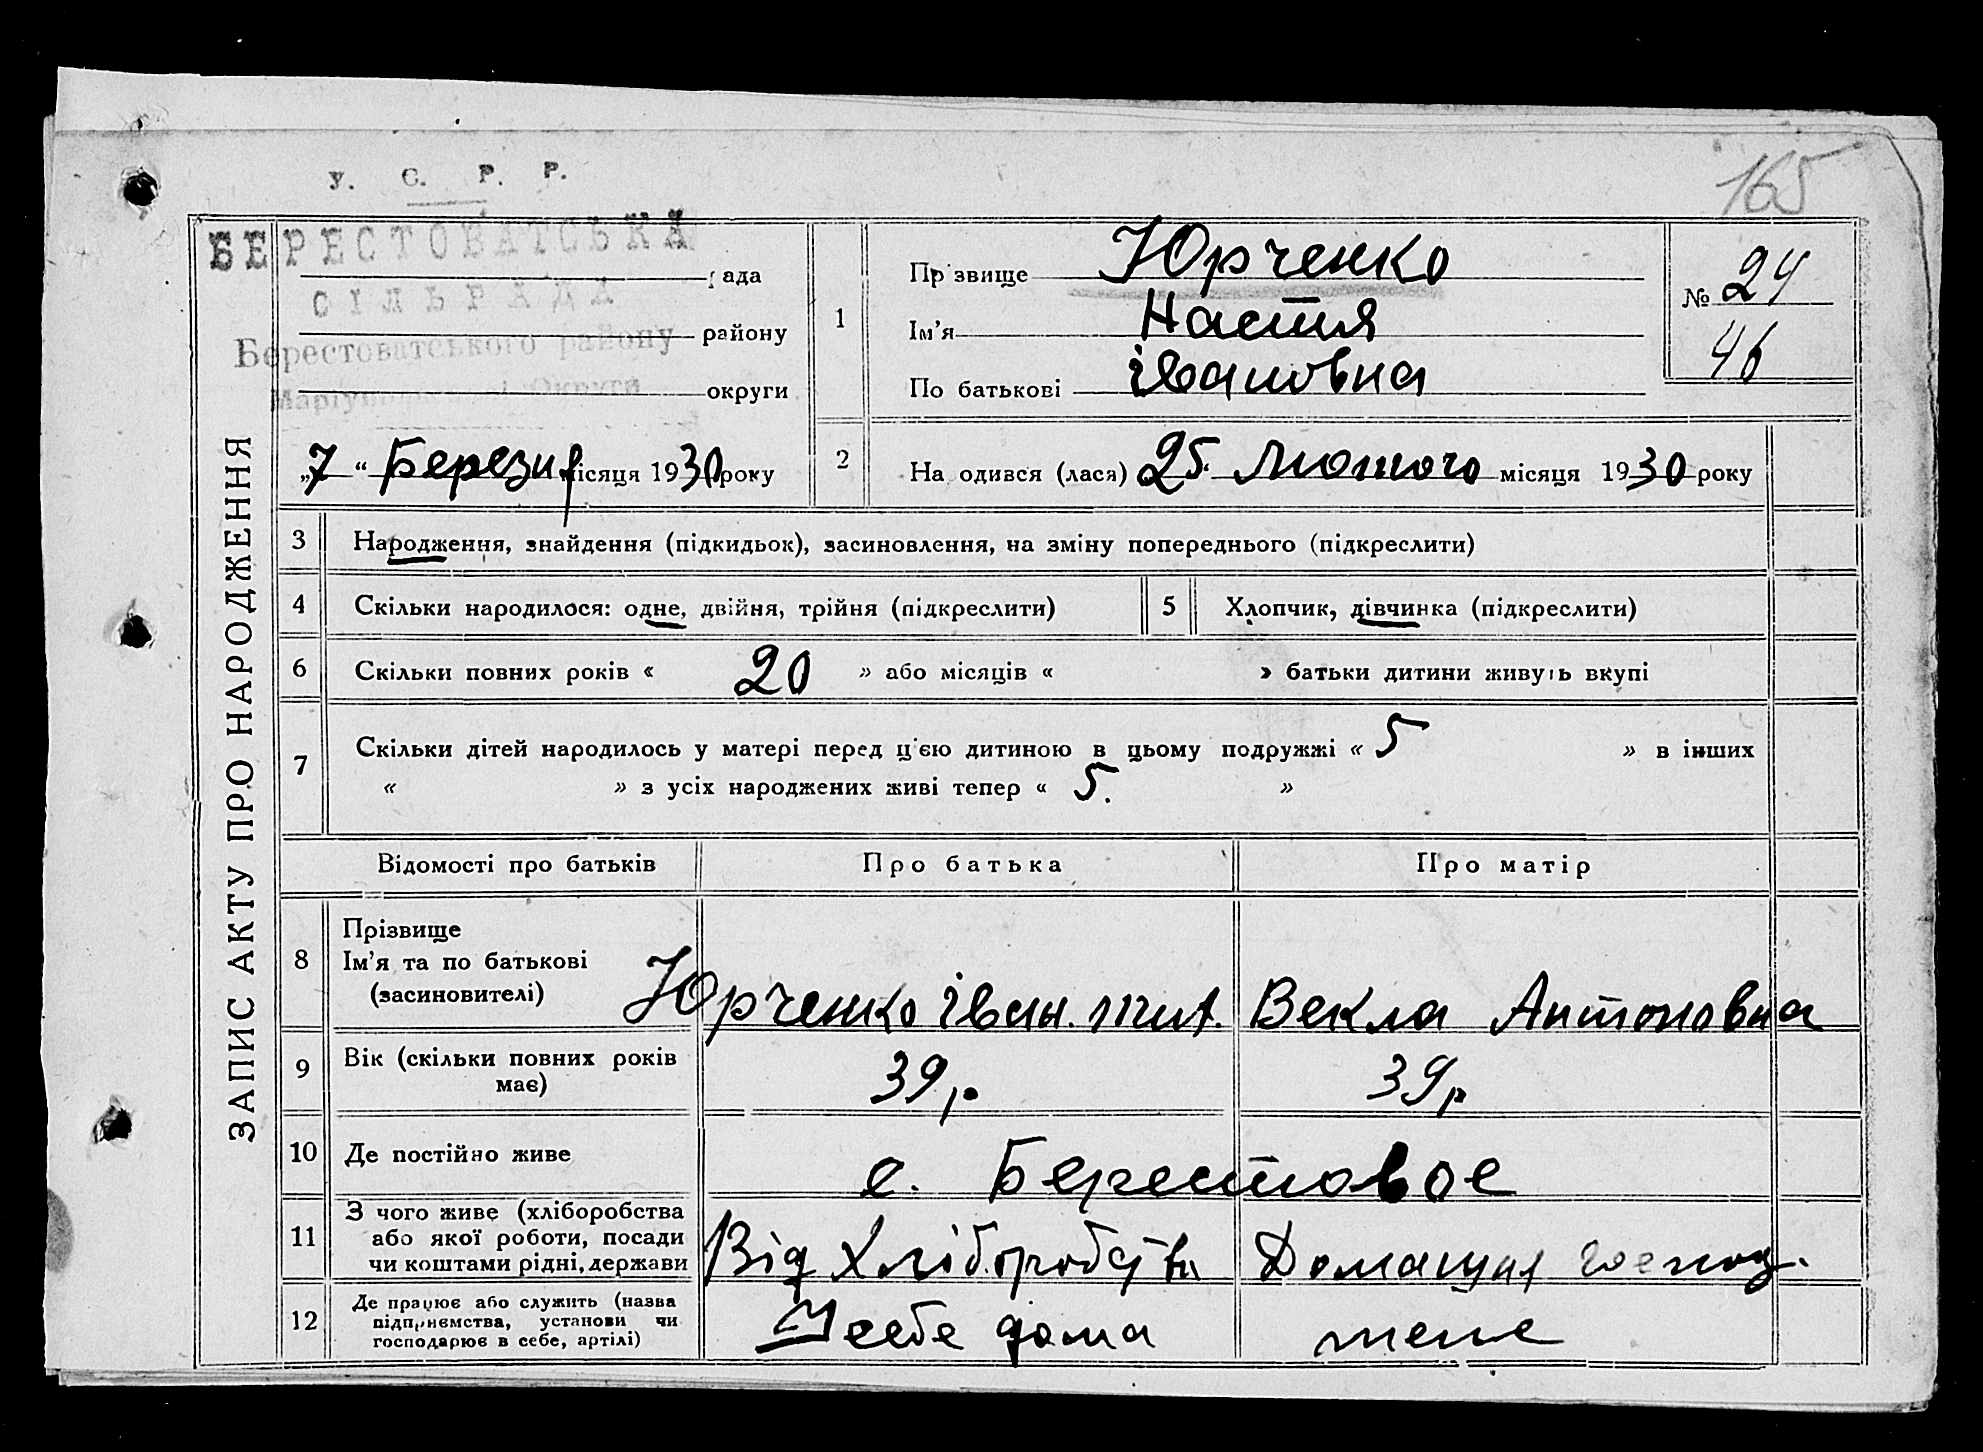 165
У. С. Р. Р.
БЕРЕСТОВАТСЬКА
рада
СІЛЬРАДА
району
Берестоватського району
Маріупільської Округи
округи
„7“ Березня місяця 1930 року
ЗАПИС АКТУ ПРО НАРОДЖЕННЯ
1
Прізвище Юрченко
Ім’я Настя
По батькові івановна
№ 24
46
2
На одився (лася) 25. Лютого місяця 1930 року
3 Народження, знайдення (підкидьок), засиновлення, на зміну попереднього (підкреслити)
4 Скільки народилося: одне, двійня, трійня (підкреслити) 5 Хлопчик, дівчинка (підкреслити)
6 Скільки повних років « 20 » або місяців « » батьки дитини живуть вкупі
7 Скільки дітей народилось у матері перед ц'єю дитиною в цьому подружжі « 5 » в інших
« » з усіх народжених живі тепер « 5. »
Відомості про батьків Про батька Про матір
8 Прізвище
Ім’я та по батькові
(засиновителі)
Юрченко іван. тит. Векла Антоновна
9 Вік (скільки повних років
має)
39 р. 39 р
10 Де постійно живе с. Берестовое
11 З чого живе (хліборобства
або якої роботи, посади
чи коштами рідні, держави
Від Хліборобства Домашня господ.
12 Де працює або служить (назва
підприємства, установи чи
господарює в себе, артілі)
У себе дома тене